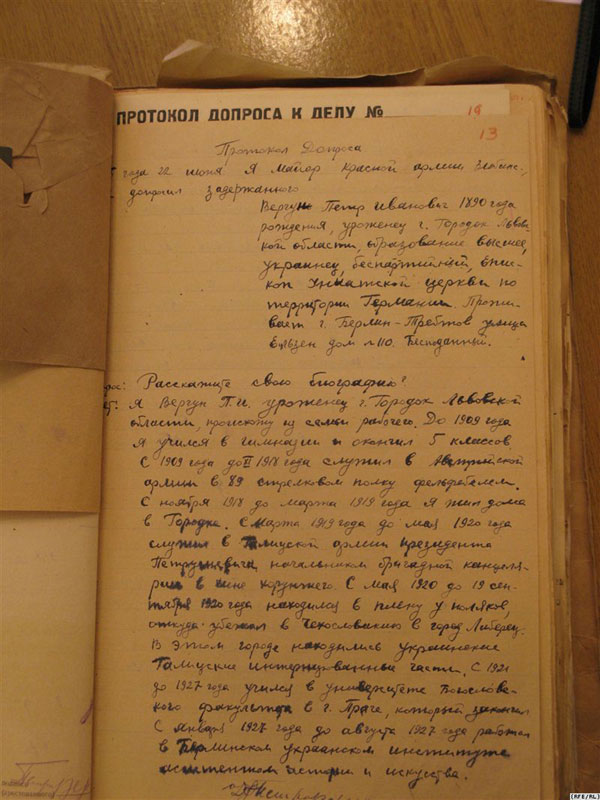 ПРОТОКОЛ ДОПРОСА К ДЕЛУ №
19
13
Протокол Допроса
года 22 июня Я Майор Красной армии
допросил задержанного
Вергун Петр Иванович 1890 года
рождения, уроженец г. Городок Львовс
кой области, образование высшее,
украинец, беспартийный, Епис
коп Униатской церкви по
территории Германии. Прожи-
вает г. Берлин-Трептов улица
дом №110. Бесподанный.
Расскажите свою биографию?
Я Вергун П.И. уроженец г. Городок Львовской
области, происхожу из семьи рабочего. До 1909 года
я учился в гимназии и окончил 5 классов
С 1909 года до II 1918 года служил в Австрийской
армии в 89 стрелковом полку фельдфебелем.
С ноября 1918 до марта 1919 года я жил дома
в Городке. С Марта 1919 года до мая 1920 года
служил в Галицкой армии президента
Петрушевича начальником бригадной канцеля-
рии в чине хорунжего. С мая 1920 до 19 сен-
тября 1920 года находился в плену у поляков,
откуда убежал в Чехословакию в город Либерец.
В этом городе находились украинские
Галицкие интернированные части. С 1921
до 1927 года учился в университете Богословс-
кого факультета в г. Праге, который закончил
С января 1927 года до августа 1927 года работал
в Берлинском украинском институте
истории и искусства.
(RFE/RL)